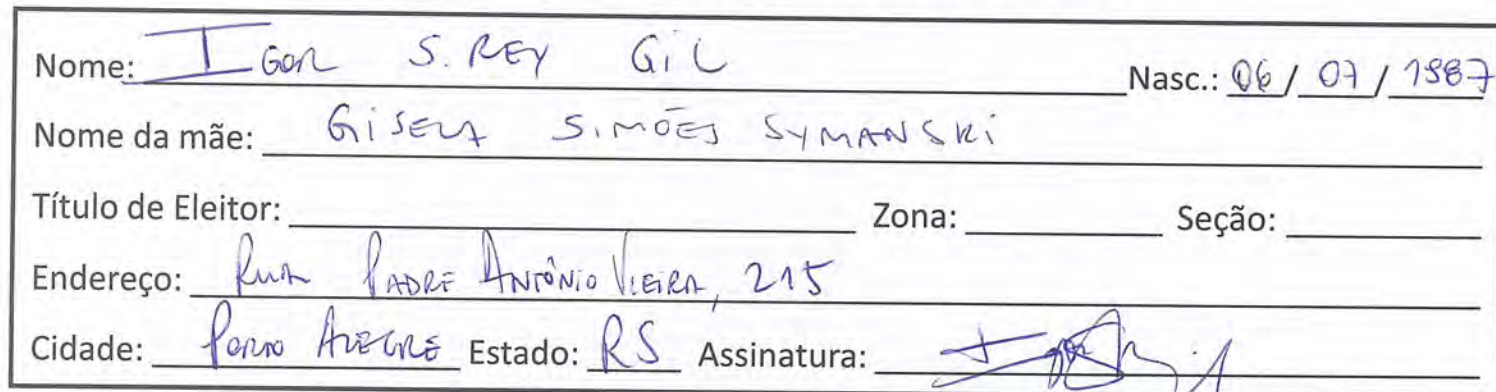 Nome: IGOR S. REY GIL Nasc.: 06/07/1987
Nome da mãe: GISELA SIMÕES SYMANSKI
Título de Eleitor: Zona: Seção:
Endereço: RUA PADRE ANTÔNIO VIEIRA, 215
Cidade: PORTO ALEGRE Estado: RS Assinatura: